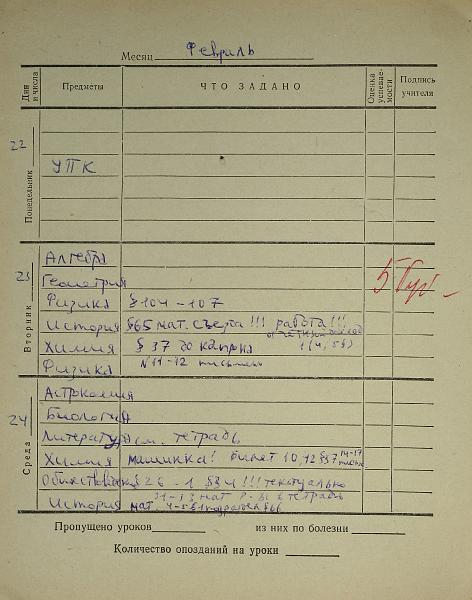 Месяц Февраль
Дни и числа Предметы ЧТО ЗАДАНО Оценка успевае-мости Подпись учителя
Понедельник 22
УПК
Вторник 23
Алгебра
Геометрия 5
Физика § 104-107
История §65 мат. съезда !!! работа !!!
Химия § 37 до
Физика №11-12 письмен
Среда 24
Астрономия
Биология
Литература см. тетрадь
Химия машинка! билет 10, 12 §37
Обществовед § 2 !!! текстуально
История мат.
Пропущено уроков из них по болезни
Количество опозданий на уроки